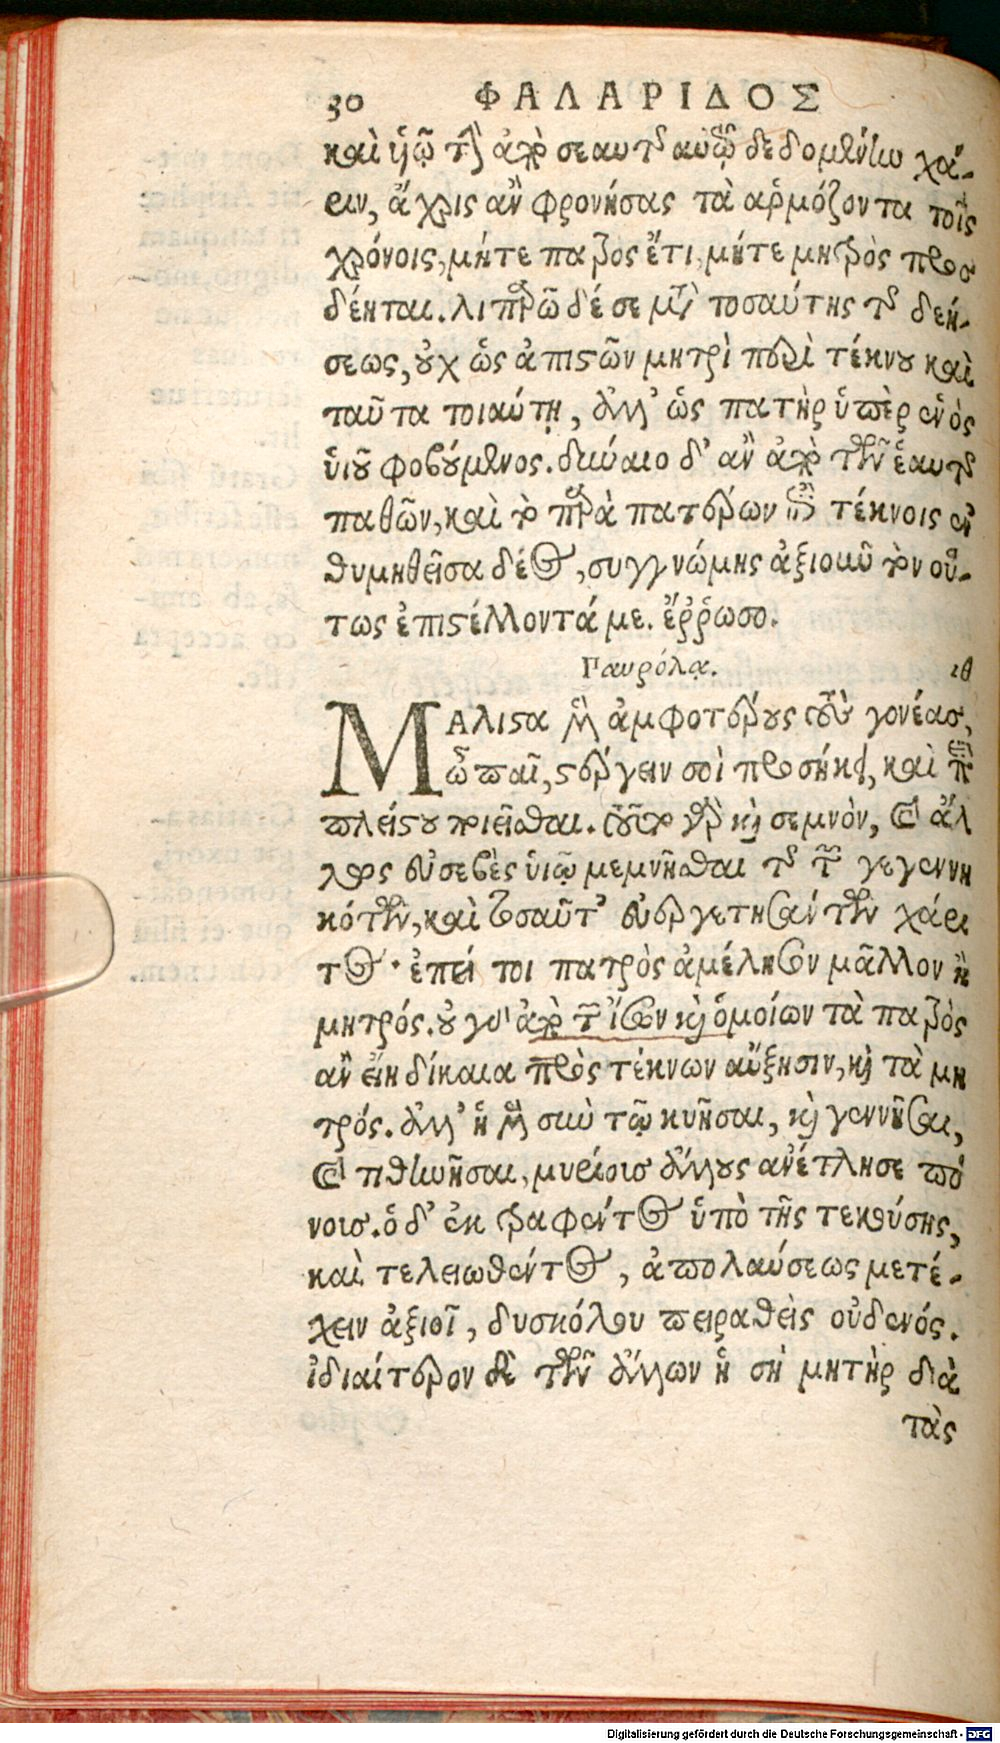 30 ΦΑΛΑΡΙΔΟΣ
καὶ υἱῷ τὴν παρὰ σεαυτοῦ αὐτῷ δεδομένην χά-
ριν, ἄχρις ἂν φρονήσας τὰ ἁρμόζοντα τοῖς
χρόνοις, μήτε πατρὸς ἔτι, μήτε μητρὸς προσ
δέηται. λιπαρῶ δέ σε μετὰ τοσαύτης τῆς δεή-
σεως, οὐχ ὡς ἀπιστῶν μητρὶ περὶ τέκνου καὶ
ταῦτα τοιαύτῃ, ἀλλ' ὡς πατὴρ ὑπὲρ ἑνὸς
υἱοῦ φοβούμενος. δύναιο δ' ἂν ἀπὸ τῶν ἑαυτῆς
παθῶν, καὶ τὸ παρὰ πατέρων τέκνοις ἐν
θυμηθεῖσα δέος, συγγνώμης ἀξιοῦν τὸν οὕ-
τως ἐπιστέλλοντά με. ἔῤῥωσο.
Παυρόλᾳ. ιθ
ΜΑλιστα μὲν ἀμφοτέρους τοὺς γονέας,
ὦ παῖ, στέργειν σοὶ προσήκει, καὶ περὶ
πλείστου ποιεῖσθαι. τοῦτο γὰρ καὶ σεμνὸν, καὶ ἄλ
λως εὐσεβὲς υἱῷ μεμνῆσθαι τῆς τῶν γεγεννη
κότων, καὶ τοσαῦτ' εὐεργετησάντων χάρι
τος· ἐπεί τοι πατρὸς ἀμέλησον μᾶλλον ἢ
μητρός. οὐ γὰρ ἀπὸ τῶν ἴσων καὶ ὁμοίων τὰ πατρὸς
ἂν εἴη δίκαια πρὸς τέκνων αὔξησιν, καὶ τὰ μη
τρός. ἀλλ' ἡ μὲν σὺν τῷ κυῆσαι, καὶ γεννῆσαι,
καὶ τιθηνῆσαι, μυρίοις ἄλλους ἀνέτλησε πό
νοις. ὁ δ' ἐκτραφέντος ὑπὸ τῆς τεκούσης,
καὶ τελειωθέντος, ἀπολαύσεως μετέ-
χειν ἀξιοῖ, δυσκόλου πειραθεὶς οὐδενός.
ἰδιαίτερον δὲ τῶν ἄλλων ἡ σὴ μητὴρ διὰ
τὰς
Digitalisierung gefördert durch die Deutsche Forschungsgemeinschaft - DFG